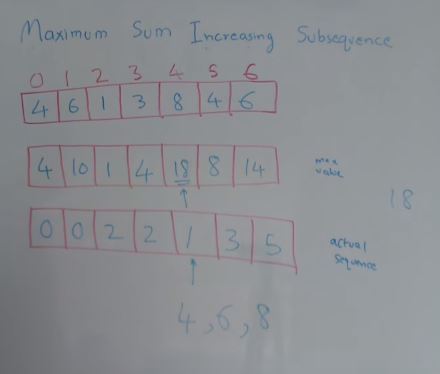 Maximum Sum Increasing Subsequence
0 1 2 3 4 5 6
4 6 1 3 8 4 6
4 10 1 4 18 8 14 max value
18
0 0 2 2 1 3 5 actual sequence
4, 6, 8